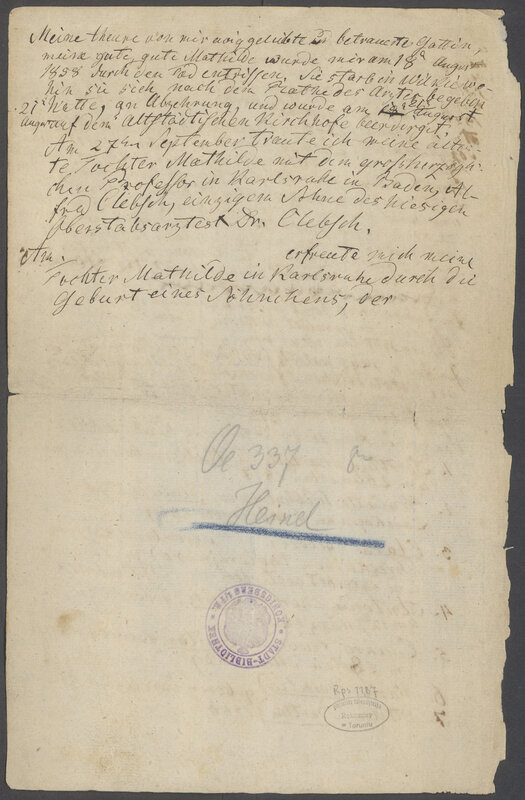 Meine theure von mir innig geliebte u betrauerte Gattin,
meine gute, gute Mathilde wurde mir am 18 August
1858 durch den Tod entrissen. Sie starb in
hin sie sich nach dem Rathe des Arztes begeben
hatte, an Abzehrung, und wurde am 21 August
auf dem Altstädtischen Kirchhofe beerdigt.
Am 27ten September traute ich meine älte-
te Tochter Mathilde mit dem großherzogli-
chen Professor in Karlsruhe in Baden, Al-
fred Clebsch, einzigem Sohne des hiesigen
Oberstabsarztes Dr. Clebsch.
Am erfreute mich meine
Tochter Mathilde in Karlsruhe durch die
Geburt eines Söhnchens, der
Oe 337
Heinel
STADT-BIBLIOTHEK * KÖNIGSBERG I/PR. *
Rps 1187
Książnica Miejska
w Toruniu